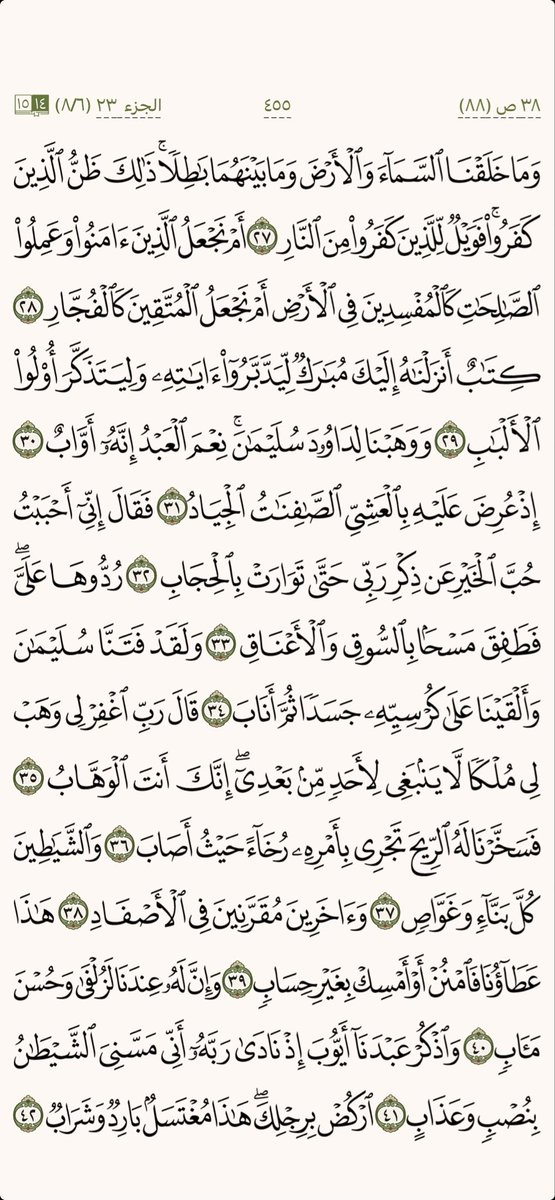 ٣٨ ص (٨٨) ٤٥٥ الجزء ٢٣ (٨/٦) ١٤ ١٥
وَمَا خَلَقْنَا ٱلسَّمَآءَ وَٱلْأَرْضَ وَمَا بَيْنَهُمَا بَٰطِلًاۚ ذَٰلِكَ ظَنُّ ٱلَّذِينَ
كَفَرُوا۟ۚ فَوَيْلٌ لِّلَّذِينَ كَفَرُوا۟ مِنَ ٱلنَّارِ ٢٧ أَمْ نَجْعَلُ ٱلَّذِينَ ءَامَنُوا۟ وَعَمِلُوا۟
ٱلصَّٰلِحَٰتِ كَٱلْمُفْسِدِينَ فِى ٱلْأَرْضِ أَمْ نَجْعَلُ ٱلْمُتَّقِينَ كَٱلْفُجَّارِ ٢٨
كِتَٰبٌ أَنزَلْنَٰهُ إِلَيْكَ مُبَٰرَكٌ لِّيَدَّبَّرُوٓا۟ ءَايَٰتِهِۦ وَلِيَتَذَكَّرَ أُو۟لُوا۟
ٱلْأَلْبَٰبِ ٢٩ وَوَهَبْنَا لِدَاوُۥدَ سُلَيْمَٰنَۚ نِعْمَ ٱلْعَبْدُ إِنَّهُۥٓ أَوَّابٌ ٣٠
إِذْ عُرِضَ عَلَيْهِ بِٱلْعَشِىِّ ٱلصَّٰفِنَٰتُ ٱلْجِيَادُ ٣١ فَقَالَ إِنِّىٓ أَحْبَبْتُ
حُبَّ ٱلْخَيْرِ عَن ذِكْرِ رَبِّى حَتَّىٰ تَوَارَتْ بِٱلْحِجَابِ ٣٢ رُدُّوهَا عَلَىَّۖ
فَطَفِقَ مَسْحًۢا بِٱلسُّوقِ وَٱلْأَعْنَاقِ ٣٣ وَلَقَدْ فَتَنَّا سُلَيْمَٰنَ
وَأَلْقَيْنَا عَلَىٰ كُرْسِيِّهِۦ جَسَدًا ثُمَّ أَنَابَ ٣٤ قَالَ رَبِّ ٱغْفِرْ لِى وَهَبْ
لِى مُلْكًا لَّا يَنۢبَغِى لِأَحَدٍ مِّنۢ بَعْدِىٓۖ إِنَّكَ أَنتَ ٱلْوَهَّابُ ٣٥
فَسَخَّرْنَا لَهُ ٱلرِّيحَ تَجْرِى بِأَمْرِهِۦ رُخَآءً حَيْثُ أَصَابَ ٣٦ وَٱلشَّيَٰطِينَ
كُلَّ بَنَّآءٍ وَغَوَّاصٍ ٣٧ وَءَاخَرِينَ مُقَرَّنِينَ فِى ٱلْأَصْفَادِ ٣٨ هَٰذَا
عَطَآؤُنَا فَٱمْنُنْ أَوْ أَمْسِكْ بِغَيْرِ حِسَابٍ ٣٩ وَإِنَّ لَهُۥ عِندَنَا لَزُلْفَىٰ وَحُسْنَ
مَـَٔابٍ ٤٠ وَٱذْكُرْ عَبْدَنَآ أَيُّوبَ إِذْ نَادَىٰ رَبَّهُۥٓ أَنِّى مَسَّنِىَ ٱلشَّيْطَٰنُ
بِنُصْبٍ وَعَذَابٍ ٤١ ٱرْكُضْ بِرِجْلِكَۖ هَٰذَا مُغْتَسَلٌۢ بَارِدٌ وَشَرَابٌ ٤٢